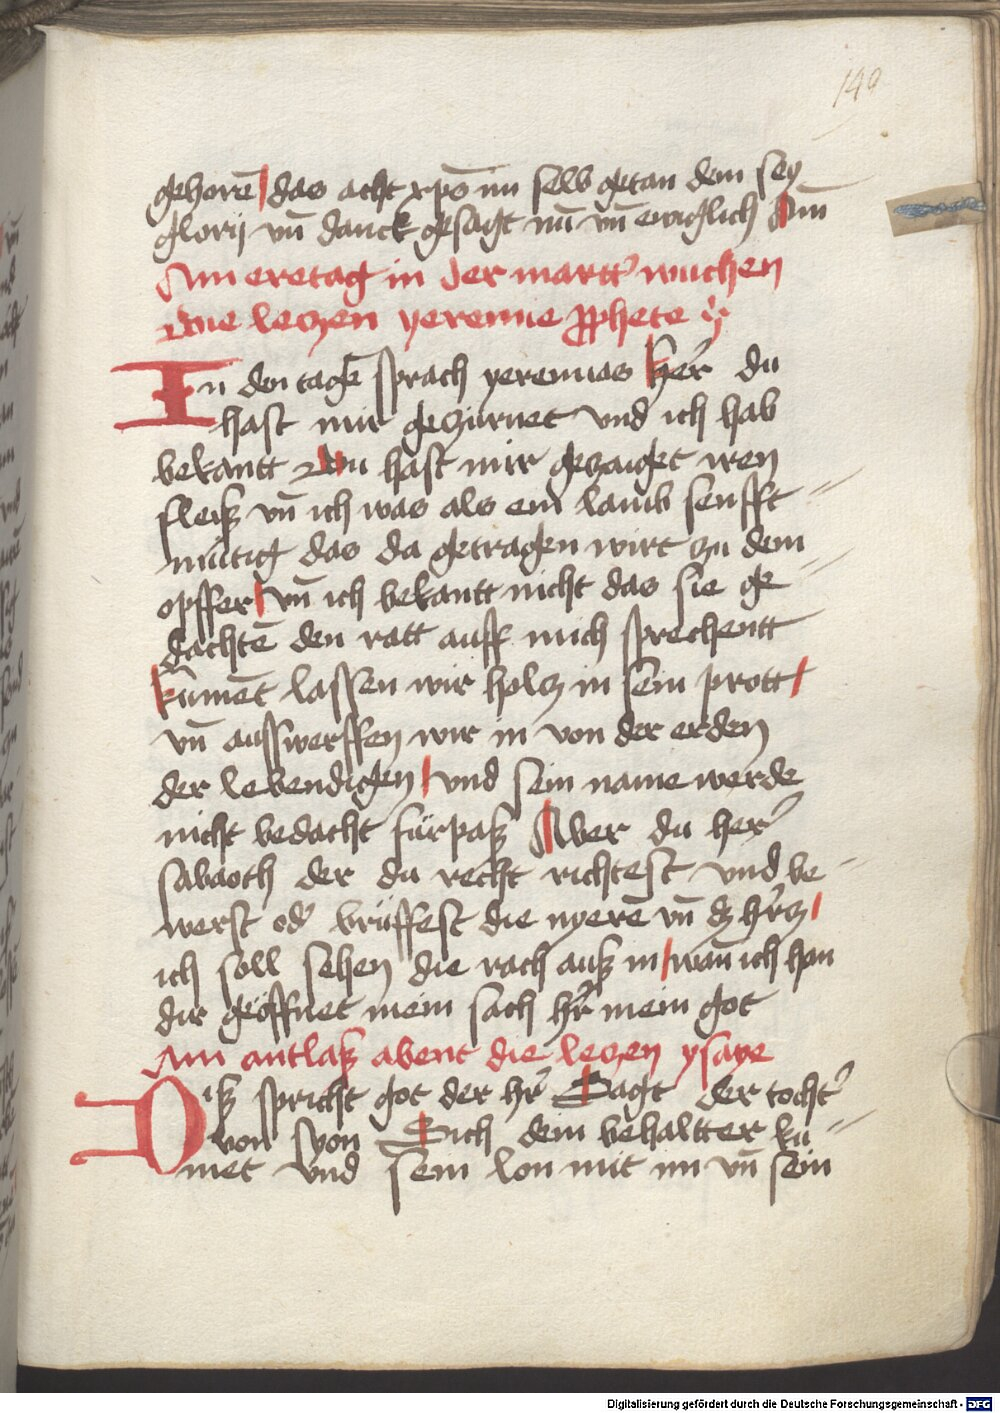 149
gehorē das acht xpo᷒ im selb getan dem sey
glorij vn̄ danck gesagt nū vn̄ ewiglich Am̄
Am eretag in der martt' wuchen
die leczen yeremie ꝓphete ij
In den tagē sprach yeremias her̄ du
hast mir geczürnet vnd ich hab
bekantt Du hast mir geczaiget iren
fleiß vn̄ ich was als ein lamb senfft
mütig das da getragen wirt zu dem
opffer vn̄ ich bekantt nicht das sie ge
dachtē den ratt auff mich sprechentt
kūmet lassen wir holcz in sein prott
vn̄ ausswerffen wir in von der erden
der lebendigen vnd sein name werde
nicht bedacht fürpaß Aber du her'
sabaoth der du recht richtest vnd be
werst od' brüffest die nyerē vn̄ dz h'rcz
ich soll sehen die rach auß in wan̄ ich han
dir geöffnet mein sach h'r mein got
Am antlaß abent die leczen ysaye
Diß spricht got der h'r Sagt der tocht'
von syon Sich dem behaltter ku
met vnd sein lon mit im vn̄ sein
Digitalisierung gefördert durch die Deutsche Forschungsgemeinschaft - DFG